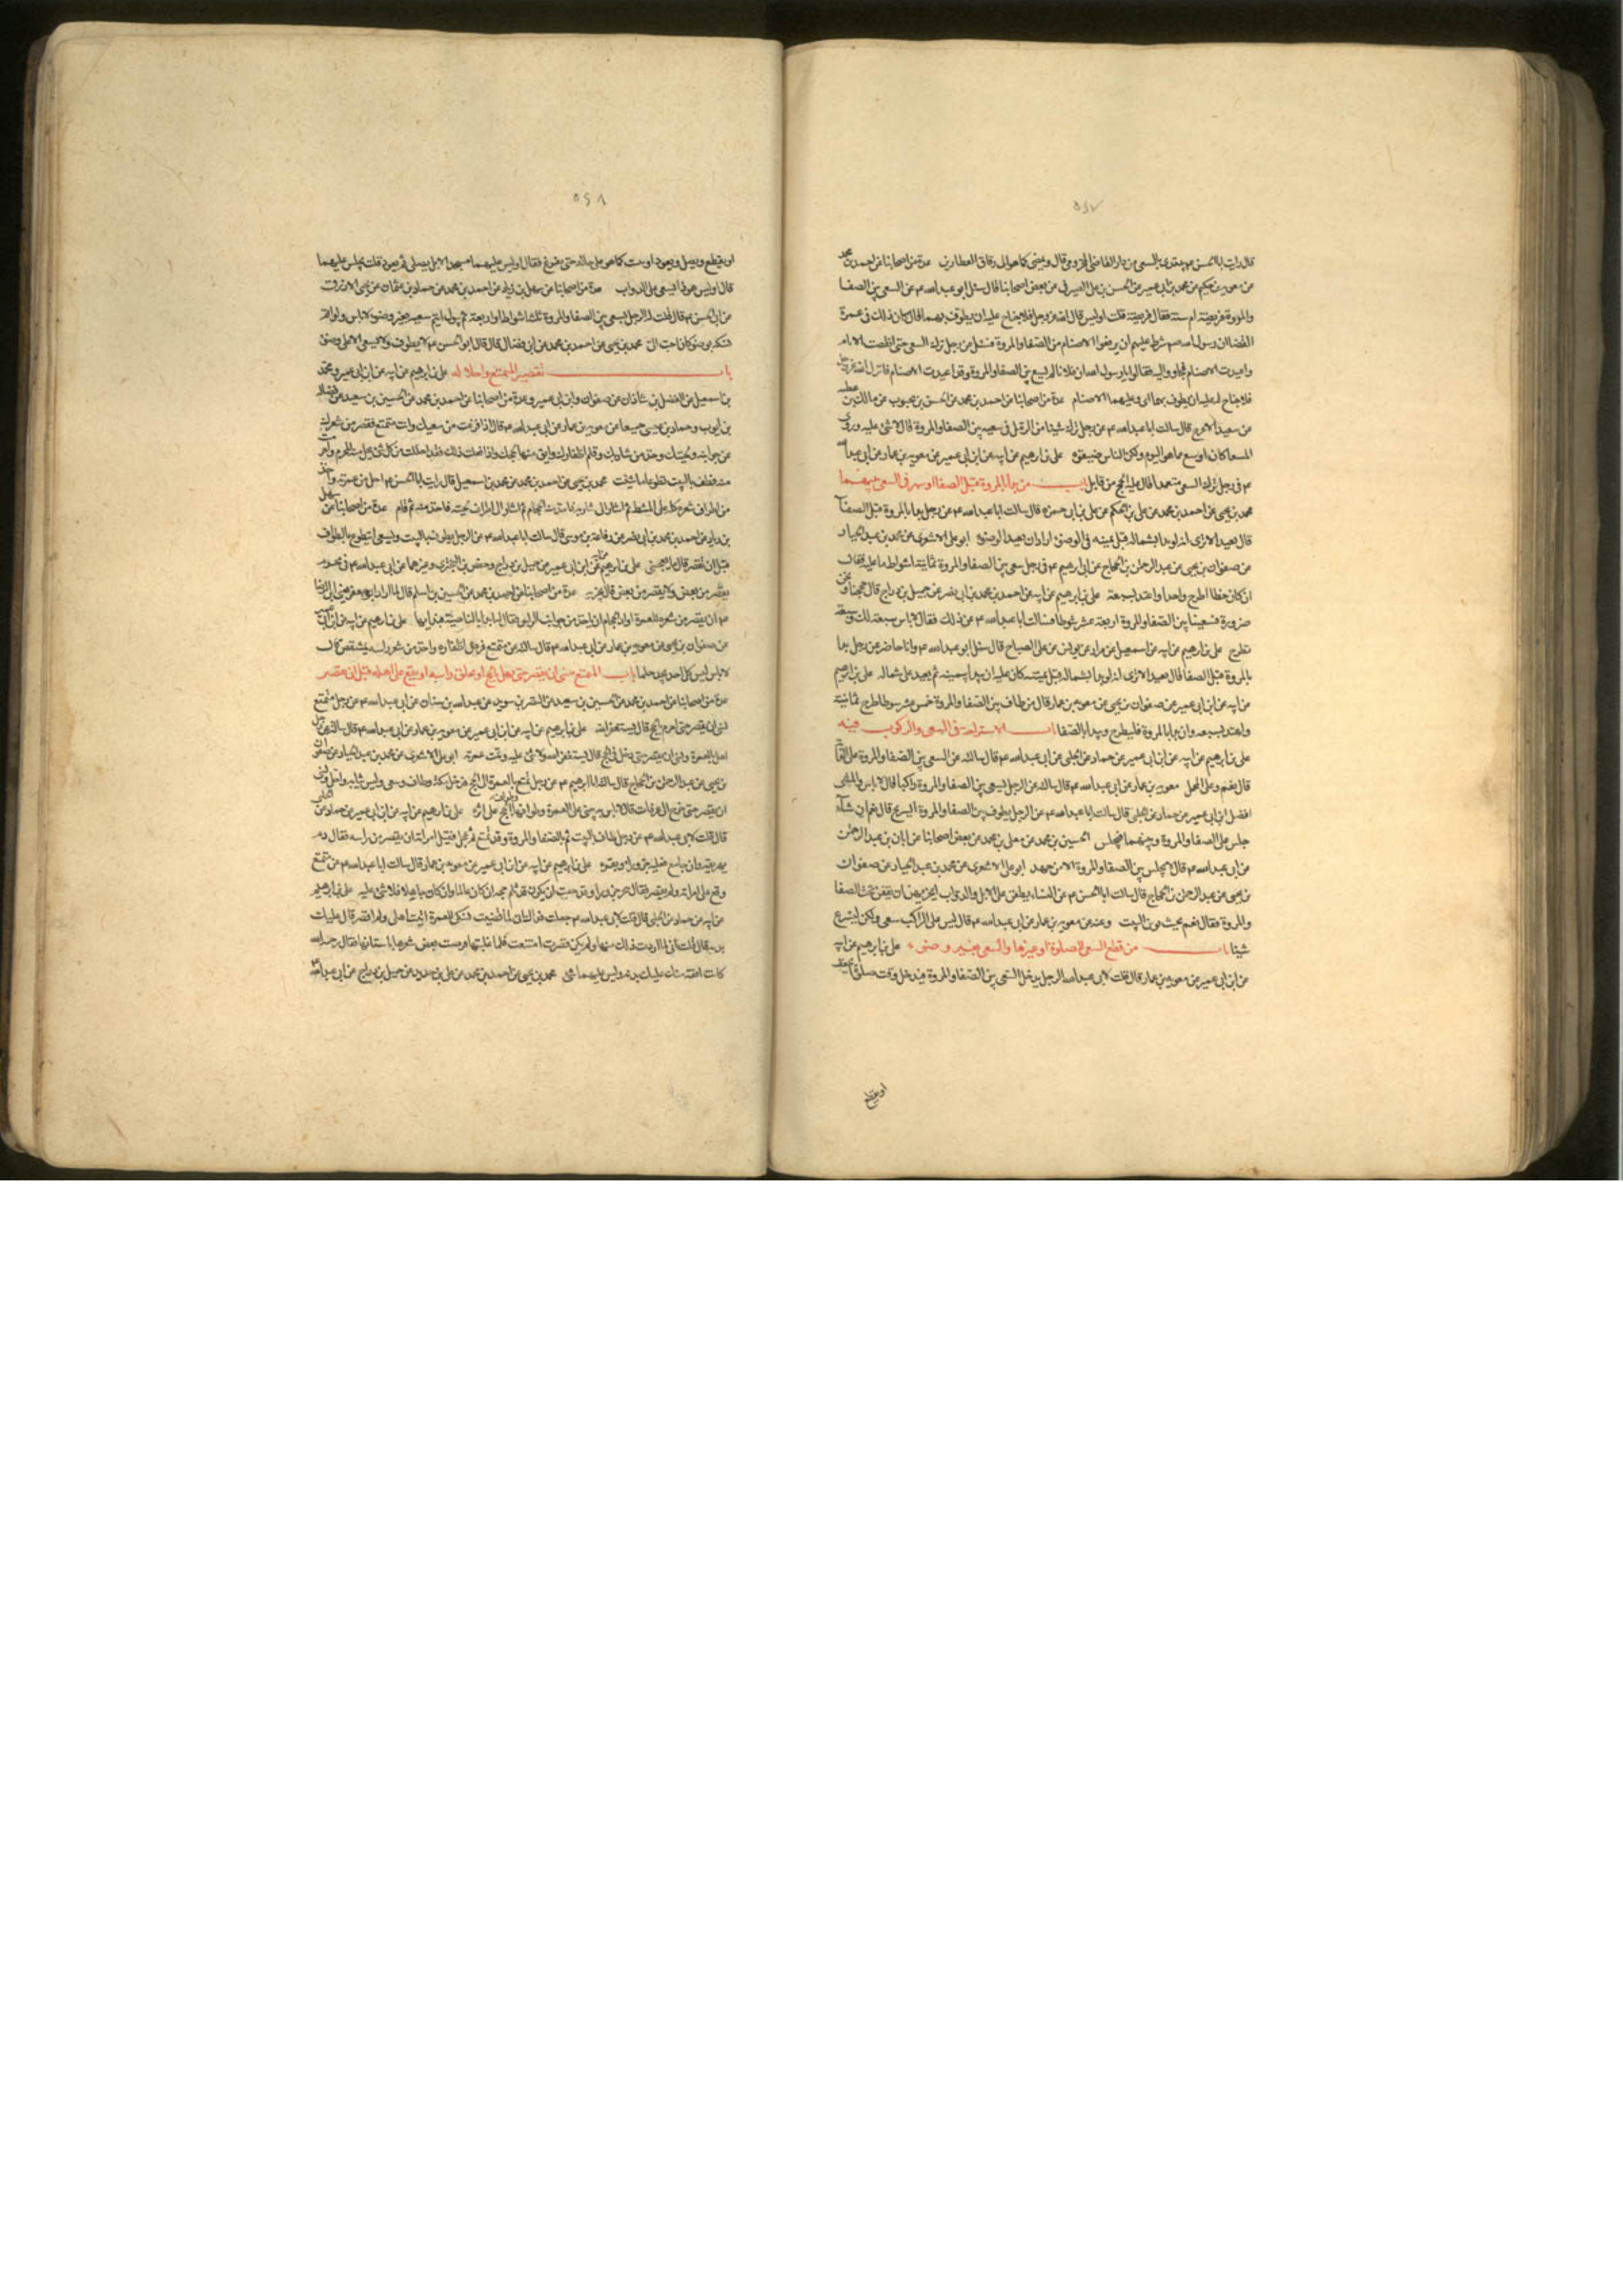 ٥٤٧
قال رايت ابا الحسن ع يبتدى بالسعى من دار القاضى المخزومى قال ويمضى كما هو الى زقاق العطارين عدة من اصحابنا عن احمد بن محمد
عن معوية بن حكيم عن محمد بن ابى عمير عن الحسن بن على الصيرفى عن بعض اصحابنا قال سئل ابو عبد الله ع عن السعى بين الصفا
والمروة فريضة ام سنة فقال فريضة قلت اوليس قال الله عز وجل فلا جناح عليه ان يطوف بهما قال كان ذلك فى عمرة
القضا ان رسول الله ص شرط عليهم ان يرفعوا الاصنام من الصفا والمروة فسئل عن رجل ترك السعى حتى انقضت الايام
واعيدت الاصنام فجاؤا اليه فقالوا يا رسول الله ان فلانا لم يسع بين الصفا والمروة وقد اعيدت الاصنام فانزل الله عز وجل
فلا جناح عليه ان يطوف بهما اى وعليهما الاصنام عدة من اصحابنا عن احمد بن محمد عن الحسن بن محبوب عن مالك بن عطية
عن سعيد الاعرج قال سالت ابا عبد الله ع عن رجل ترك شيئا من الرمل فى سعيه بين الصفا والمروة قال لا شئ عليه وروى ان
المسعا كان اوسع مما هو اليوم ولكن الناس ضيقوه على بن ابرهيم عن ابيه عن ابن ابى عمير عن معوية بن عمار عن ابى عبد الله
ع فى رجل ترك السعى متعمدا قال عليه الحج من قابل باب من بدا بالمروة قبل الصفا او سهى فى السعى بينهما
محمد بن يحيى عن احمد بن محمد عن على بن الحكم عن على بن ابى حمزه قال سالت ابا عبد الله ع عن رجل بدا بالمروة قبل الصفا
قال يعيد الا ترى انه لو بدا بشماله قبل يمينه فى الوضوء اراد ان يعيد الوضوء ابو على الاشعرى عن محمد بن عبد الجبار
عن صفوان بن يحيى عن عبد الرحمن بن الحجاج عن ابى ابرهيم ع فى رجل سعى بين الصفا والمروة ثمانية اشواط ما عليه فقال
ان كان خطا اطرح واحدا واعتد بسبعة على بن ابرهيم عن ابيه عن احمد بن محمد بن ابى نصر عن جميل بن دراج قال حججنا ونحن
صرورة فسعينا بين الصفا والمروة اربعة عشر شوطا فسالت ابا عبد الله ع عن ذلك فقال لا باس سبعة لك وسبعة
تطرح على بن ابرهيم عن ابيه عن اسمعيل بن مرار عن يونس عن على الصباح قال سئل ابو عبد الله ع وانا حاضر عن رجل بدا
بالمروة قبل الصفا قال يعيد الا ترى انه لو بدا بشماله قبل يمينه كان عليه ان يبدا بيمينه ثم يعيد على شماله على بن ابرهيم
عن ابيه عن ابن ابى عمير عن صفوان بن يحيى عن معوية بن عمار قال من طاف بين الصفا والمروة خمسة عشر شوطا طرح ثمانية
واعتد بسبعه وان بدا بالمروة فليطرح ويبدا بالصفا باب الاستراحة فى السعى والركوب فيه
على بن ابرهيم عن ابيه عن ابن ابى عمير عن حماد عن الحلبى عن ابى عبد الله ع قال سالته عن السعى بين الصفا والمروة على الدابة
قال نعم وعلى المحمل معوية بن عمار عن ابى عبد الله ع قال سالته عن الرجل يسعى بين الصفا والمروة راكبا قال لا باس والمشى
افضل ابن ابى عمير عن حماد عن الحلبى قال سالت ابا عبد الله ع عن الرجل يطوف بين الصفا والمروة ايستريح قال نعم ان شاء
جلس على الصفا والمروة وبينهما فيجلس الحسين بن محمد عن معلى بن محمد عن بعض اصحابنا عن ابان بن عبد الرحمن
عن ابى عبد الله ع قال لا يجلس بين الصفا والمروة الا من جهد ابو على الاشعرى عن محمد بن عبد الجبار عن صفوان
بن يحيى عن عبد الرحمن بن الحجاج قال سالت ابا الحسن ع عن النساء يطفن على الابل والدواب ايجزيهن ان يقفن تحت الصفا
والمروة فقال نعم بحيث يرين البيت وعنه عن معوية بن عمار عن ابى عبد الله ع قال ليس على الراكب سعى ولكن ليسرع
شيئا باب من قطع السعى للصلوة او غيرها والسعى بغير وضوء على بن ابرهيم عن ابيه
عن ابن ابى عمير عن معوية بن عمار قال قلت لابى عبد الله الرجل يدخل السعى بين الصفا والمروة فيدخل وقت صلوة ايخفف
او يقطع
٥٤٨
او يقطع ويصلى ويعود او يثبت كما هو على حاله حتى يفرغ فقال اوليس عليهما مسجد لا بل يصلى ثم يعود قلت يجلس عليهما
قال اوليس هو ذا يسعى على الدواب عدة من اصحابنا عن سهل بن زياد عن احمد بن محمد عن حماد بن عثمان عن يحيى الازرق
عن ابى الحسن ع قال قلت له الرجل يسعى بين الصفا والمروة ثلثة اشواط او اربعة ثم يبول ايتم سعيه بغير وضوء قال لا باس ولو اتم
نسكه بوضوء كان احب الى محمد بن يحيى عن احمد بن محمد عن ابن فضال قال قال ابو الحسن ع لا يطوف ولا يسعى الا على وضوء
باب تقصير المتمتع واحلاله على بن ابرهيم عن ابيه عن ابن ابى عمير ومحمد
بن اسمعيل عن الفضل بن شاذان عن صفوان وابن ابى عمير وعدة من اصحابنا عن احمد بن محمد عن الحسين بن سعيد عن فضالة
بن ايوب وحماد بن عيسى جميعا عن معوية بن عمار عن ابى عبد الله ع قال اذا فرغت من سعيك وانت متمتع فقصر من شعرك
من جوانبه ولحيتك وخذ من شاربك وقلم اظفارك وابق منها لحجك واذا فعلت ذلك فقد احللت من كل شئ يحل منه المحرم واحرمت
منه فطف بالبيت تطوعا ما شئت محمد بن يحيى عن احمد بن محمد عن محمد بن اسمعيل قال رايت ابا الحسن ع احل من عمرته واخذ
من اطراف شعره كله على المشط ثم اشار الى شاربه فاخذ منه الحجام ثم اشار الى اطراف لحيته فاخذ منه ثم قام عدة من اصحابنا عن سهل
بن زياد عن احمد بن محمد بن ابى نصر عن رفاعة بن موسى قال سالت ابا عبد الله ع عن الرجل يطوف بالبيت ويسعى ايتطوع بالطواف
قبل ان يقصر قال ما يعجبنى على بن ابرهيم عن ابيه عن ابن ابى عمير عن جميل بن دراج وحفص بن البخترى وغيرهما عن ابى عبد الله ع فى محرم
يقصر من بعض ولا يقصر من بعض قال يجزيه عدة من اصحابنا عن احمد بن محمد عن الحسين بن اسلم قال لما اراد ابو جعفر يعنى ابن الرضا
ع ان يقصر من شعره للعمرة اراد الحجام ان ياخذ من جوانب الراس فقال له ابدا بالناصية فبدا بها على بن ابرهيم عن ابيه عن ابن ابى عمير
عن صفوان بن يحيى عن معوية بن عمار عن ابى عبد الله ع قال سالته عن متمتع قرض اظفاره واخذ من شعر راسه بمشقص قال
لا باس ليس كل احد يجد جلما باب المتمتع ينسى ان يقصر حتى يهل بالحج او يحلق راسه او يقع على اهله قبل ان يقصر
عدة من اصحابنا عن احمد بن محمد عن الحسين بن سعيد عن النضر بن سويد عن عبد الله بن سنان عن ابى عبد الله ع عن رجل متمتع
نسى ان يقصر حتى احرم بالحج قال يستغفر الله على بن ابرهيم عن ابيه عن ابن ابى عمير عن معوية بن عمار عن ابى عبد الله ع قال سالته عن رجل
اهل بالعمرة ونسى ان يقصر حتى دخل فى الحج قال يستغفر الله ولا شئ عليه وتمت عمرته ابو على الاشعرى عن محمد بن عبد الجبار عن صفوان
بن يحيى عن عبد الرحمن بن الحجاج قال سالت ابا ابرهيم ع عن رجل تمتع بالعمرة الى الحج فدخل مكة وطاف وسعى ولبس ثيابه واحل ونسى
ان يقصر حتى خرج الى عرفات قال لا باس به يبنى على العمرة وطوافها وطواف الحج على اثره على بن ابرهيم عن ابيه عن ابن ابى عمير عن حماد عن الحلبى
قال قلت لابى عبد الله ع عن رجل طاف بالبيت ثم بالصفا والمروة وقد تمتع ثم عجل فقبل امراته ان يقصر من راسه فقال دم
يهريقه وان جامع فعليه جزور او بقره على بن ابرهيم عن ابيه عن ابن ابى عمير عن معوية بن عمار قال سالت ابا عبد الله ع عن متمتع
وقع على امراته ولم يقصر فقال ينحر جزورا وقد خشيت ان يكون قد ثلم حجه ان كان عالما وان كان جاهلا فلا شئ عليه على بن ابرهيم
عن ابيه عن حماد عن الحلبى قال قلت لابى عبد الله ع جعلت فداك انى لما قضيت نسكى للعمرة اتيت اهلى ولم اقصر قال عليك
بدنة قال قلت انى لما اردت ذلك منها ولم يكن قصرت امتنعت فلما غلبتها قرضت بعض شعرها باسنانها فقال رحمها الله
كانت افقه منك عليك بدنة وليس عليها شئ محمد بن يحيى عن احمد بن محمد عن على بن حديد عن جميل بن دراج عن ابى عبد الله